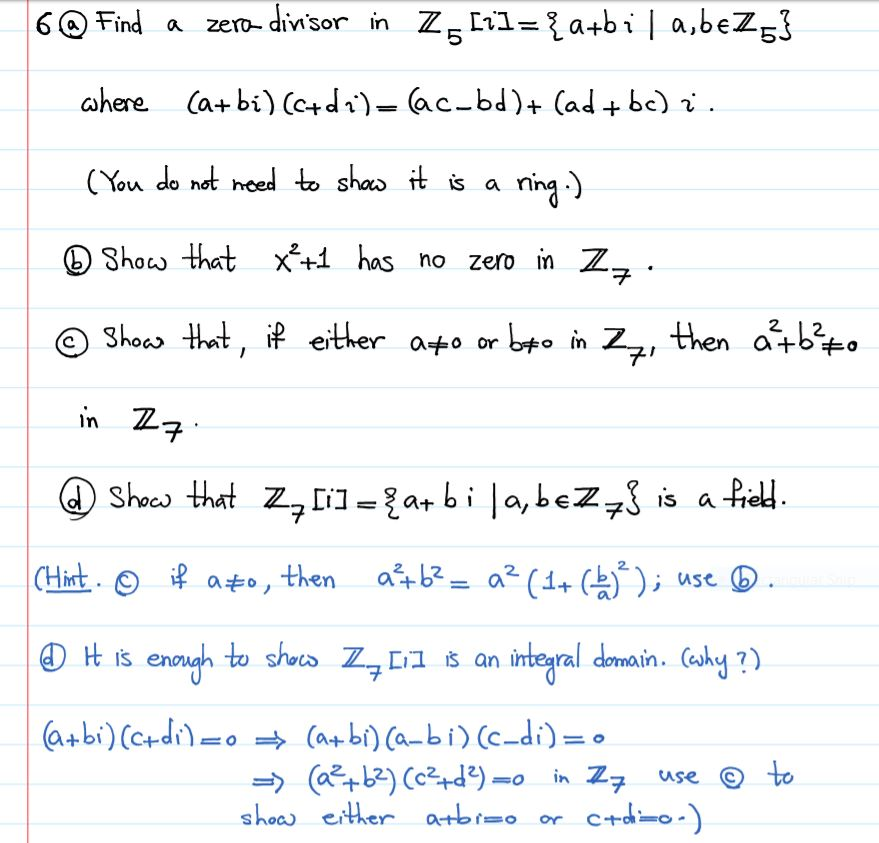 6 ⓐ Find a zero-divisor in ℤ₅[i]={a+bi | a,b∈ℤ₅}
where (a+bi)(c+di)=(ac-bd)+(ad+bc)i.
(You do not need to show it is a ring.)
ⓑ Show that x²+1 has no zero in ℤ₇.
ⓒ Show that, if either a≠0 or b≠0 in ℤ₇, then a²+b²≠0
in ℤ₇.
ⓓ Show that ℤ₇[i]={a+bi | a,b∈ℤ₇} is a field.
(Hint. ⓒ if a≠0, then a²+b²= a²(1+(b/a)²); use ⓑ.
ⓓ It is enough to show ℤ₇[i] is an integral domain. (why?)
(a+bi)(c+di)=0 ⇒ (a+bi)(a-bi)(c-di)=0
⇒ (a²+b²)(c²+d²)=0 in ℤ₇ use ⓒ to
show either a+bi=0 or c+di=0.)